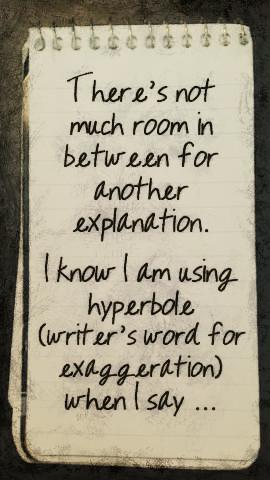 There's not
much room in
between for
another
explanation.
I know I am using
hyperbole
(writer's word for
exaggeration)
when I say ...